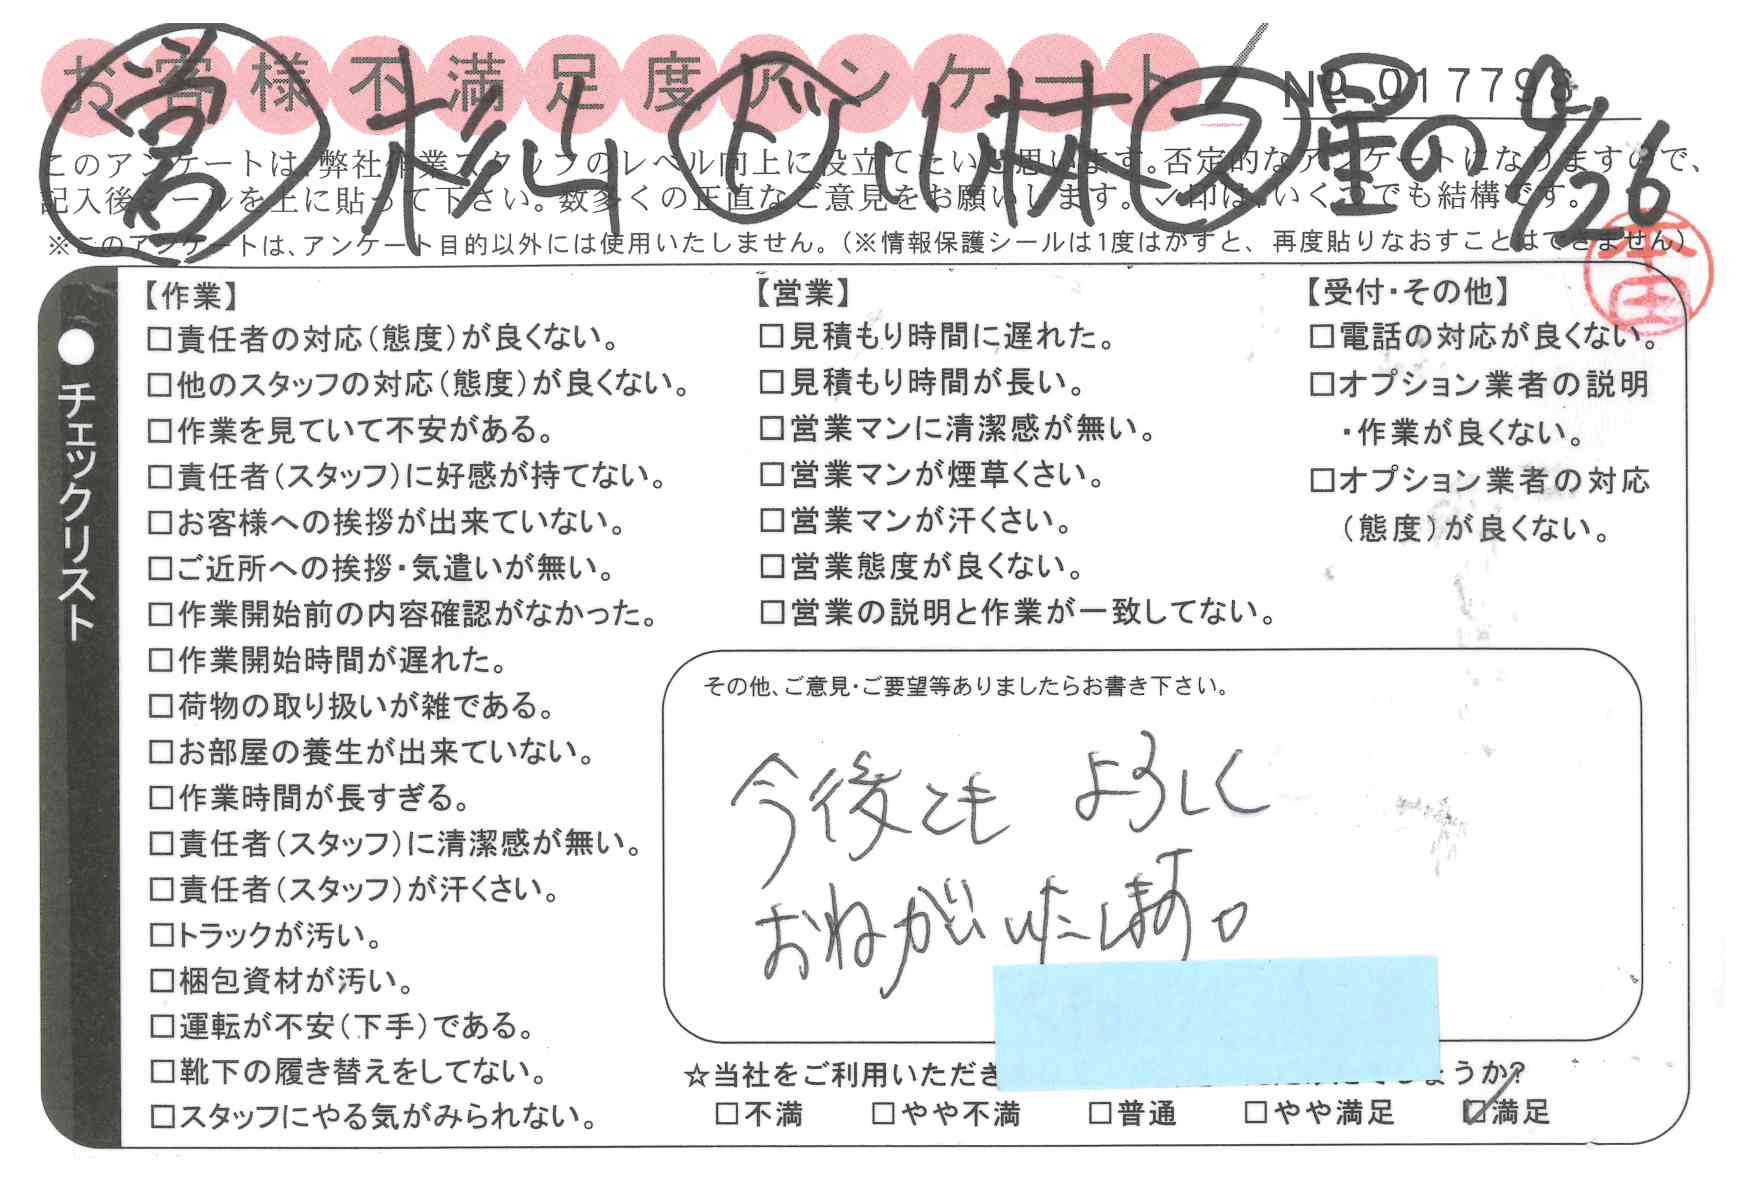 お客様不満足度アンケート
№ 017798
営 杉山 ド 小林 ス 星の 9/26
このアンケートは、弊社作業スタッフのレベル向上に役立てたいと思います。否定的なアンケートになりますので、
記入後シールを上に貼って下さい。数多くの正直なご意見をお願いします。✓印は、いくつでも結構です。
※このアンケートは、アンケート目的以外には使用いたしません。(※情報保護シールは1度はがすと、再度貼りなおすことはできません)
本田
●チェックリスト
【作業】
□責任者の対応(態度)が良くない。
□他のスタッフの対応(態度)が良くない。
□作業を見ていて不安がある。
□責任者(スタッフ)に好感が持てない。
□お客様への挨拶が出来ていない。
□ご近所への挨拶・気遣いが無い。
□作業開始前の内容確認がなかった。
□作業開始時間が遅れた。
□荷物の取り扱いが雑である。
□お部屋の養生が出来ていない。
□作業時間が長すぎる。
□責任者(スタッフ)に清潔感が無い。
□責任者(スタッフ)が汗くさい。
□トラックが汚い。
□梱包資材が汚い。
□運転が不安(下手)である。
□靴下の履き替えをしてない。
□スタッフにやる気がみられない。
【営業】
□見積もり時間に遅れた。
□見積もり時間が長い。
□営業マンに清潔感が無い。
□営業マンが煙草くさい。
□営業マンが汗くさい。
□営業態度が良くない。
□営業の説明と作業が一致してない。
【受付・その他】
□電話の対応が良くない。
□オプション業者の説明
・作業が良くない。
□オプション業者の対応
(態度)が良くない。
その他、ご意見・ご要望等ありましたらお書き下さい。
今後とも よろしく
おねがいいたします。
☆当社をご利用いただき ょうか?
□不満 □やや不満 □普通 □やや満足 ☑満足